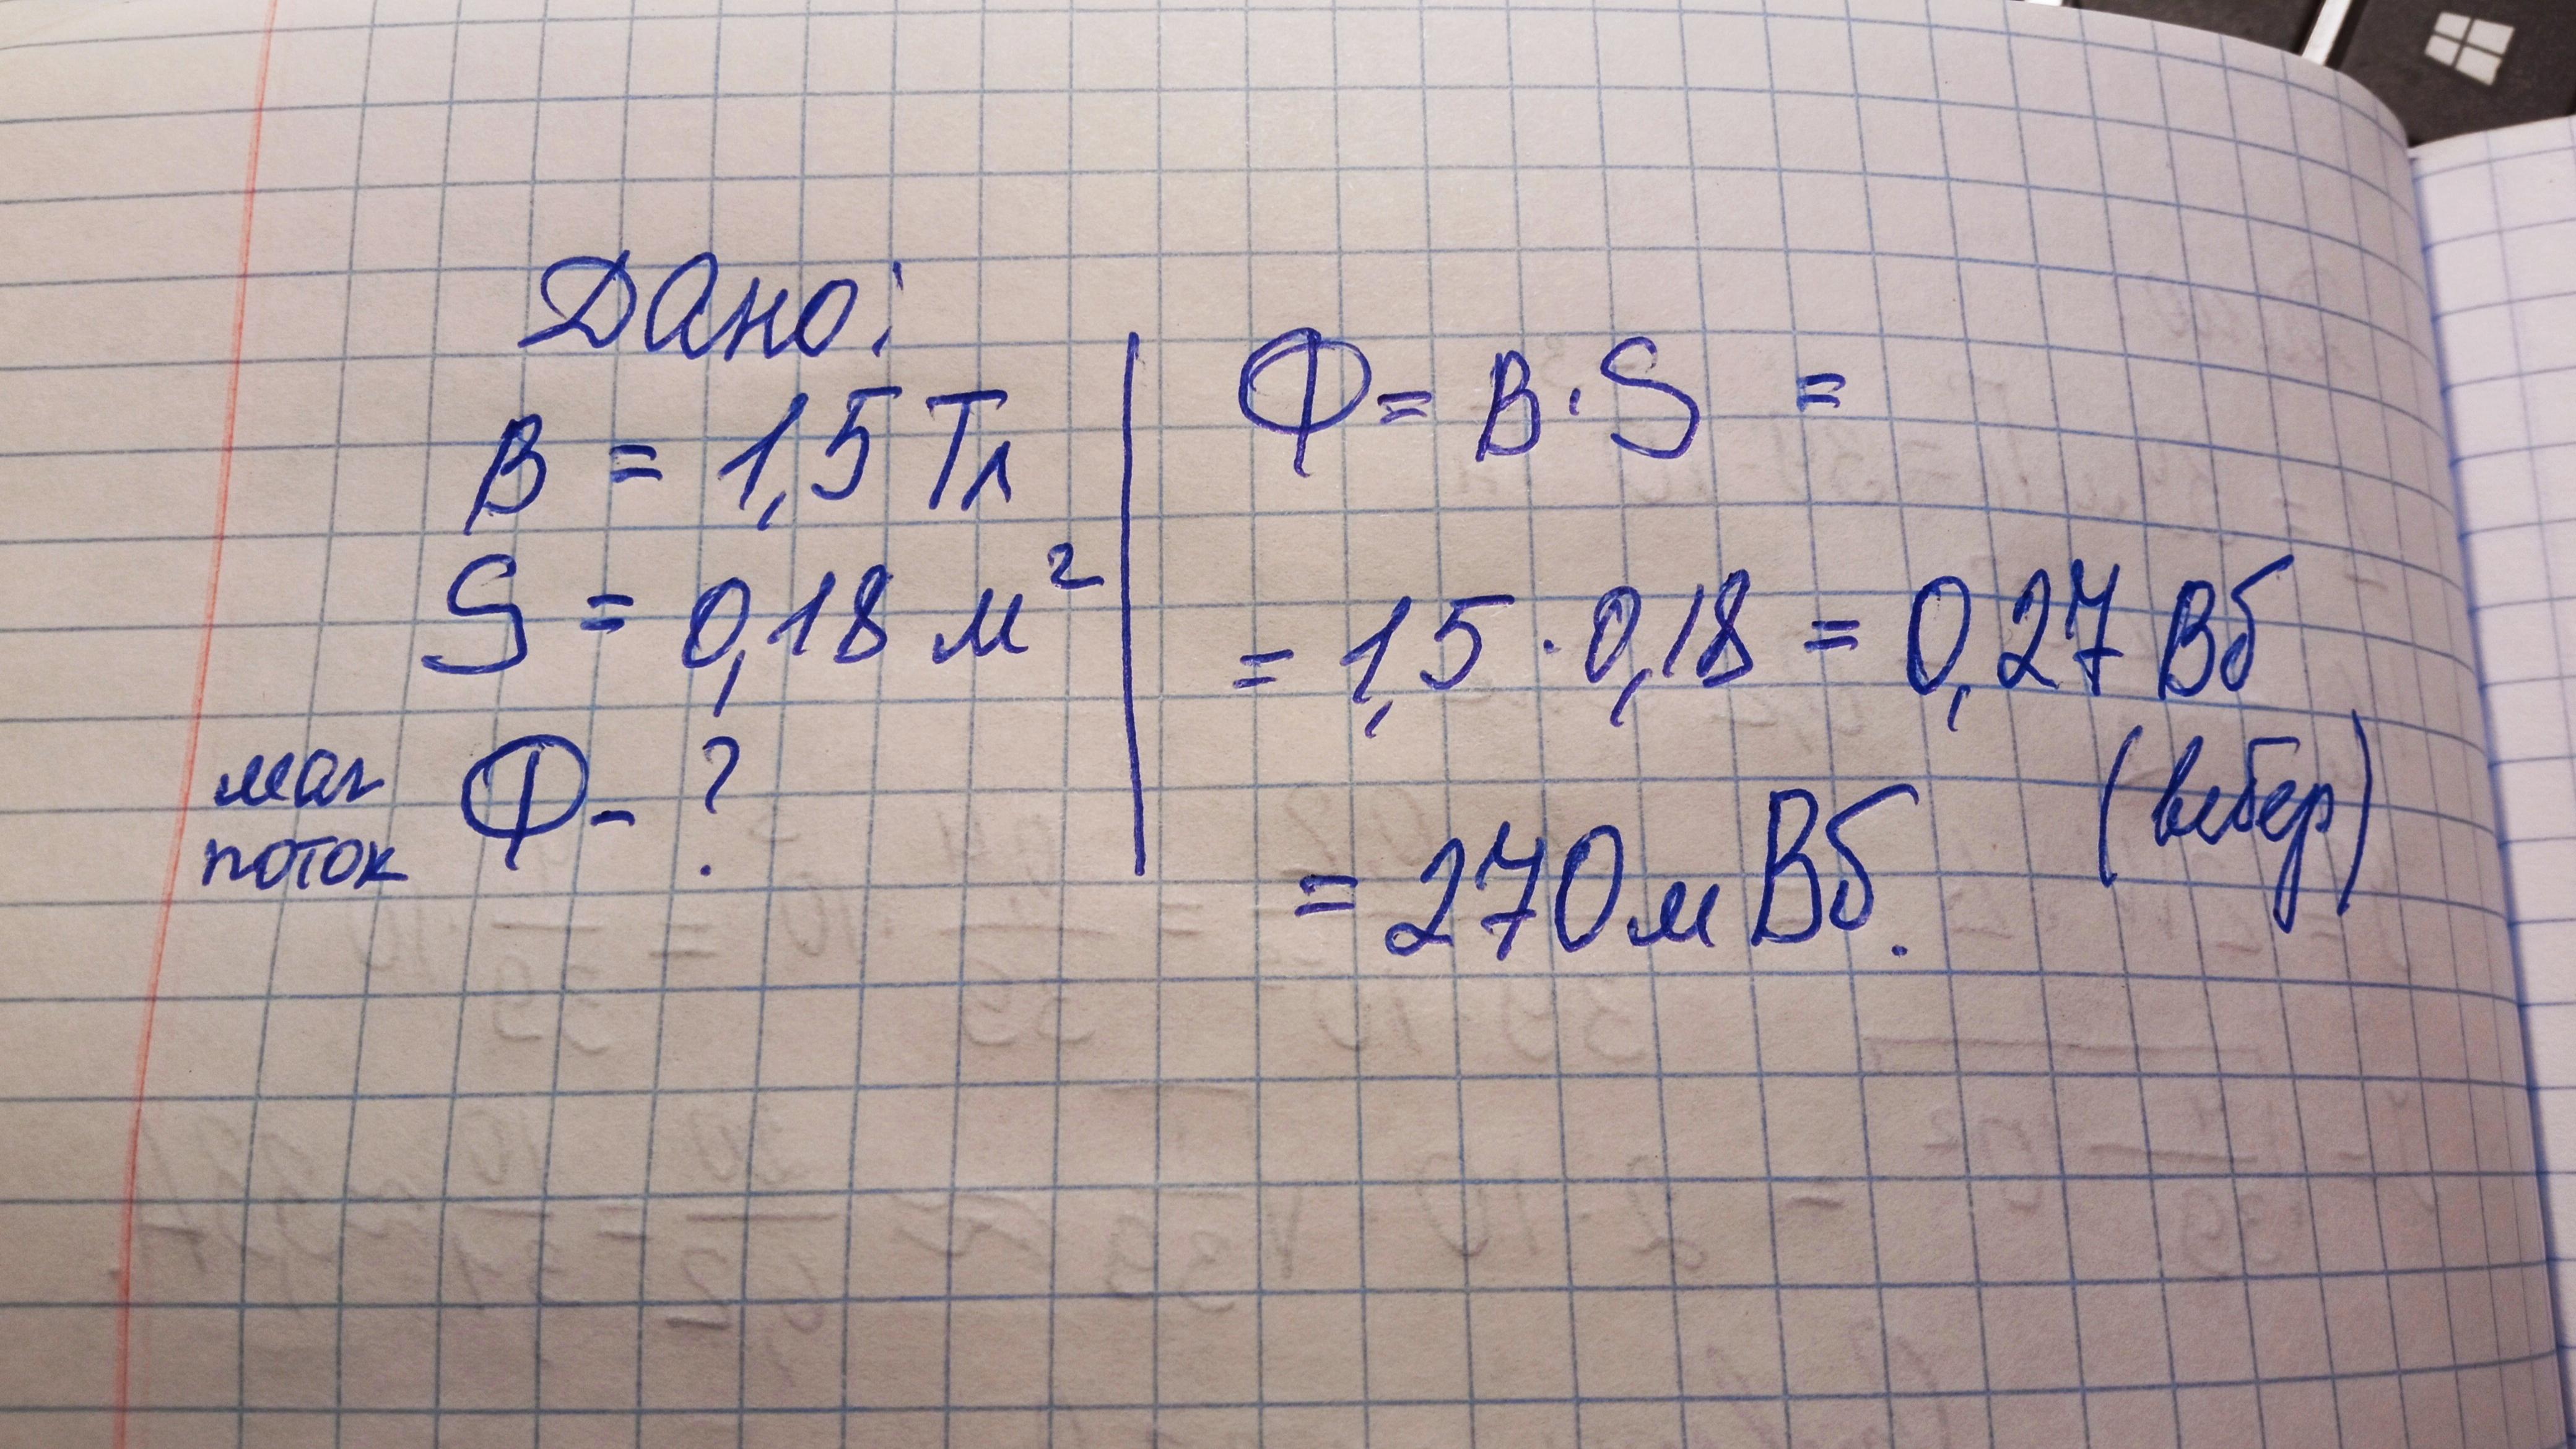 Дано:
B = 1,5 Тл
S = 0,18 м²
маг
поток
Ф - ?
Ф = B · S =
= 1,5 · 0,18 = 0,27 Вб
(вебер)
= 270 мВб.